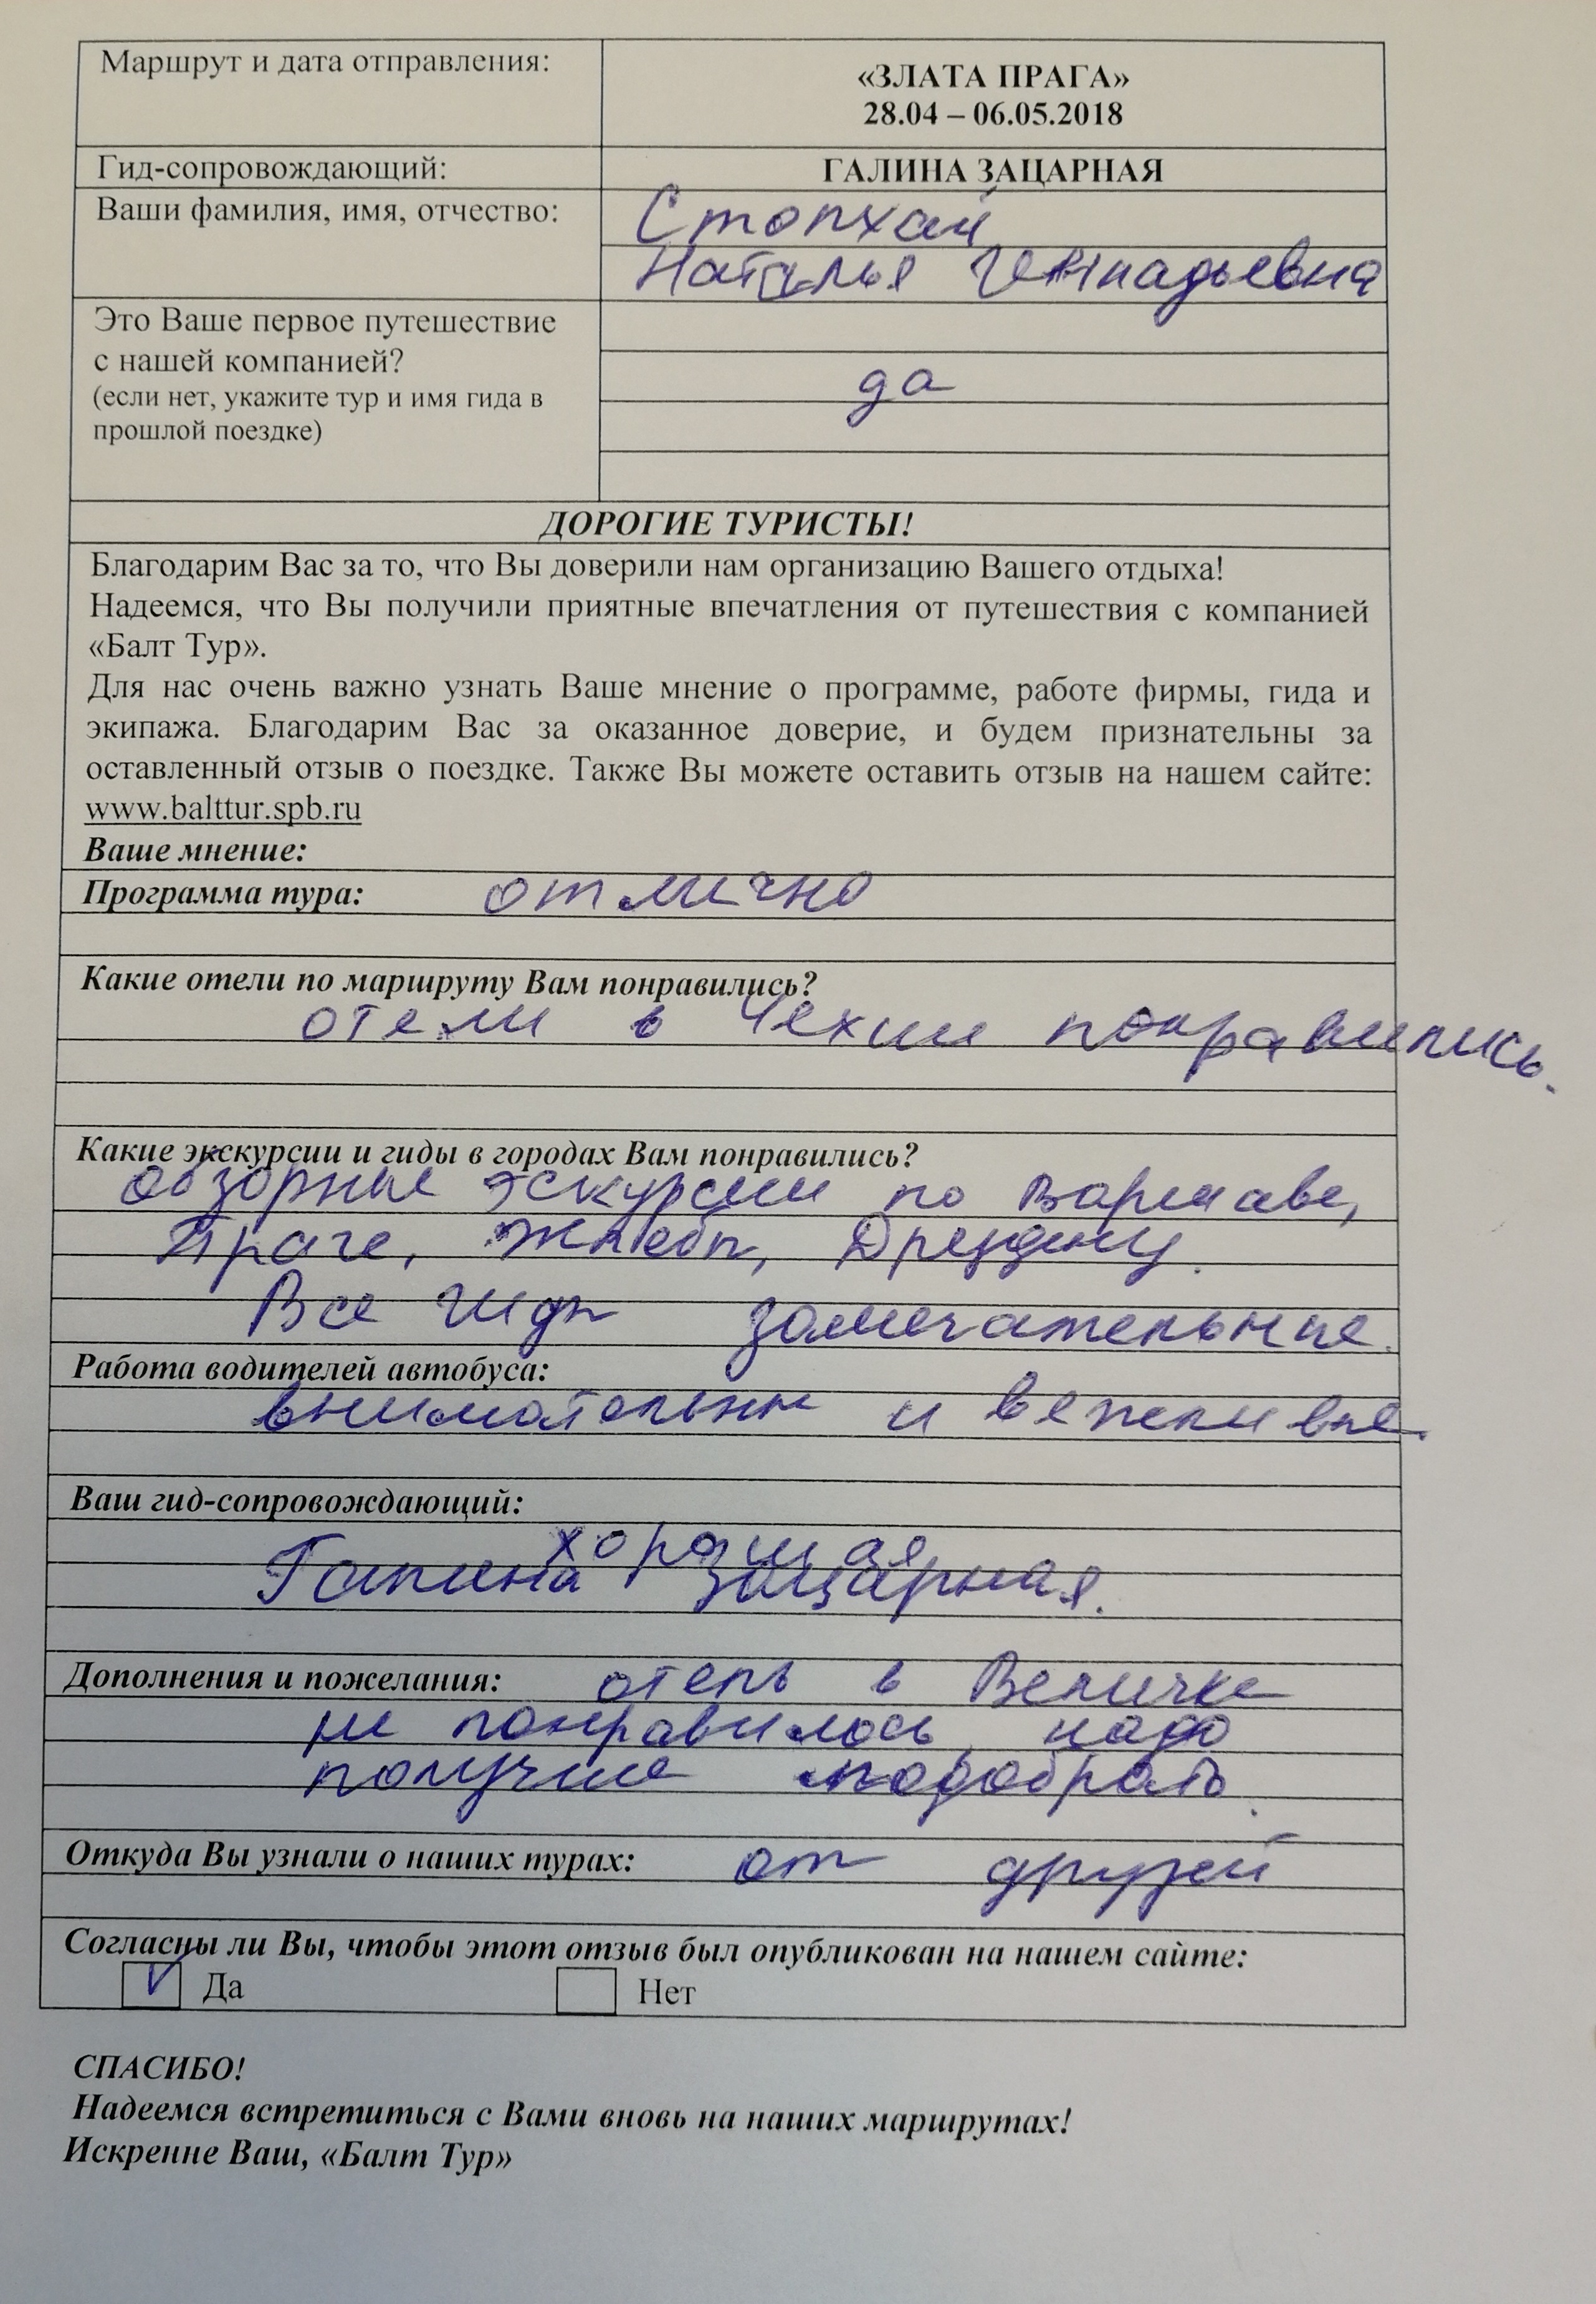 Маршрут и дата отправления:
«ЗЛАТА ПРАГА»
28.04 – 06.05.2018
Гид-сопровождающий:
ГАЛИНА ЗАЦАРНАЯ
Ваши фамилия, имя, отчество:
Стопхай
Наталья Геннадьевна
Это Ваше первое путешествие
с нашей компанией?
(если нет, укажите тур и имя гида в
прошлой поездке)
да
ДОРОГИЕ ТУРИСТЫ!
Благодарим Вас за то, что Вы доверили нам организацию Вашего отдыха!
Надеемся, что Вы получили приятные впечатления от путешествия с компанией
«Балт Тур».
Для нас очень важно узнать Ваше мнение о программе, работе фирмы, гида и
экипажа. Благодарим Вас за оказанное доверие, и будем признательны за
оставленный отзыв о поездке. Также Вы можете оставить отзыв на нашем сайте:
www.balttur.spb.ru
Ваше мнение:
Программа тура: отлично
Какие отели по маршруту Вам понравились?
отели в Чехии понравились.
Какие экскурсии и гиды в городах Вам понравились?
обзорные эскурсии по Варшаве,
Праге, Жлебы, Дрездену.
Все гиды замечательные.
Работа водителей автобуса:
внимательны и вежливые.
Ваш гид-сопровождающий:
хорошая
Галина Зацарная.
Дополнения и пожелания: отель в Величке
не понравилось, надо
получше подобрать.
Откуда Вы узнали о наших турах: от друзей
Согласны ли Вы, чтобы этот отзыв был опубликован на нашем сайте:
V Да Нет
СПАСИБО!
Надеемся встретиться с Вами вновь на наших маршрутах!
Искренне Ваш, «Балт Тур»